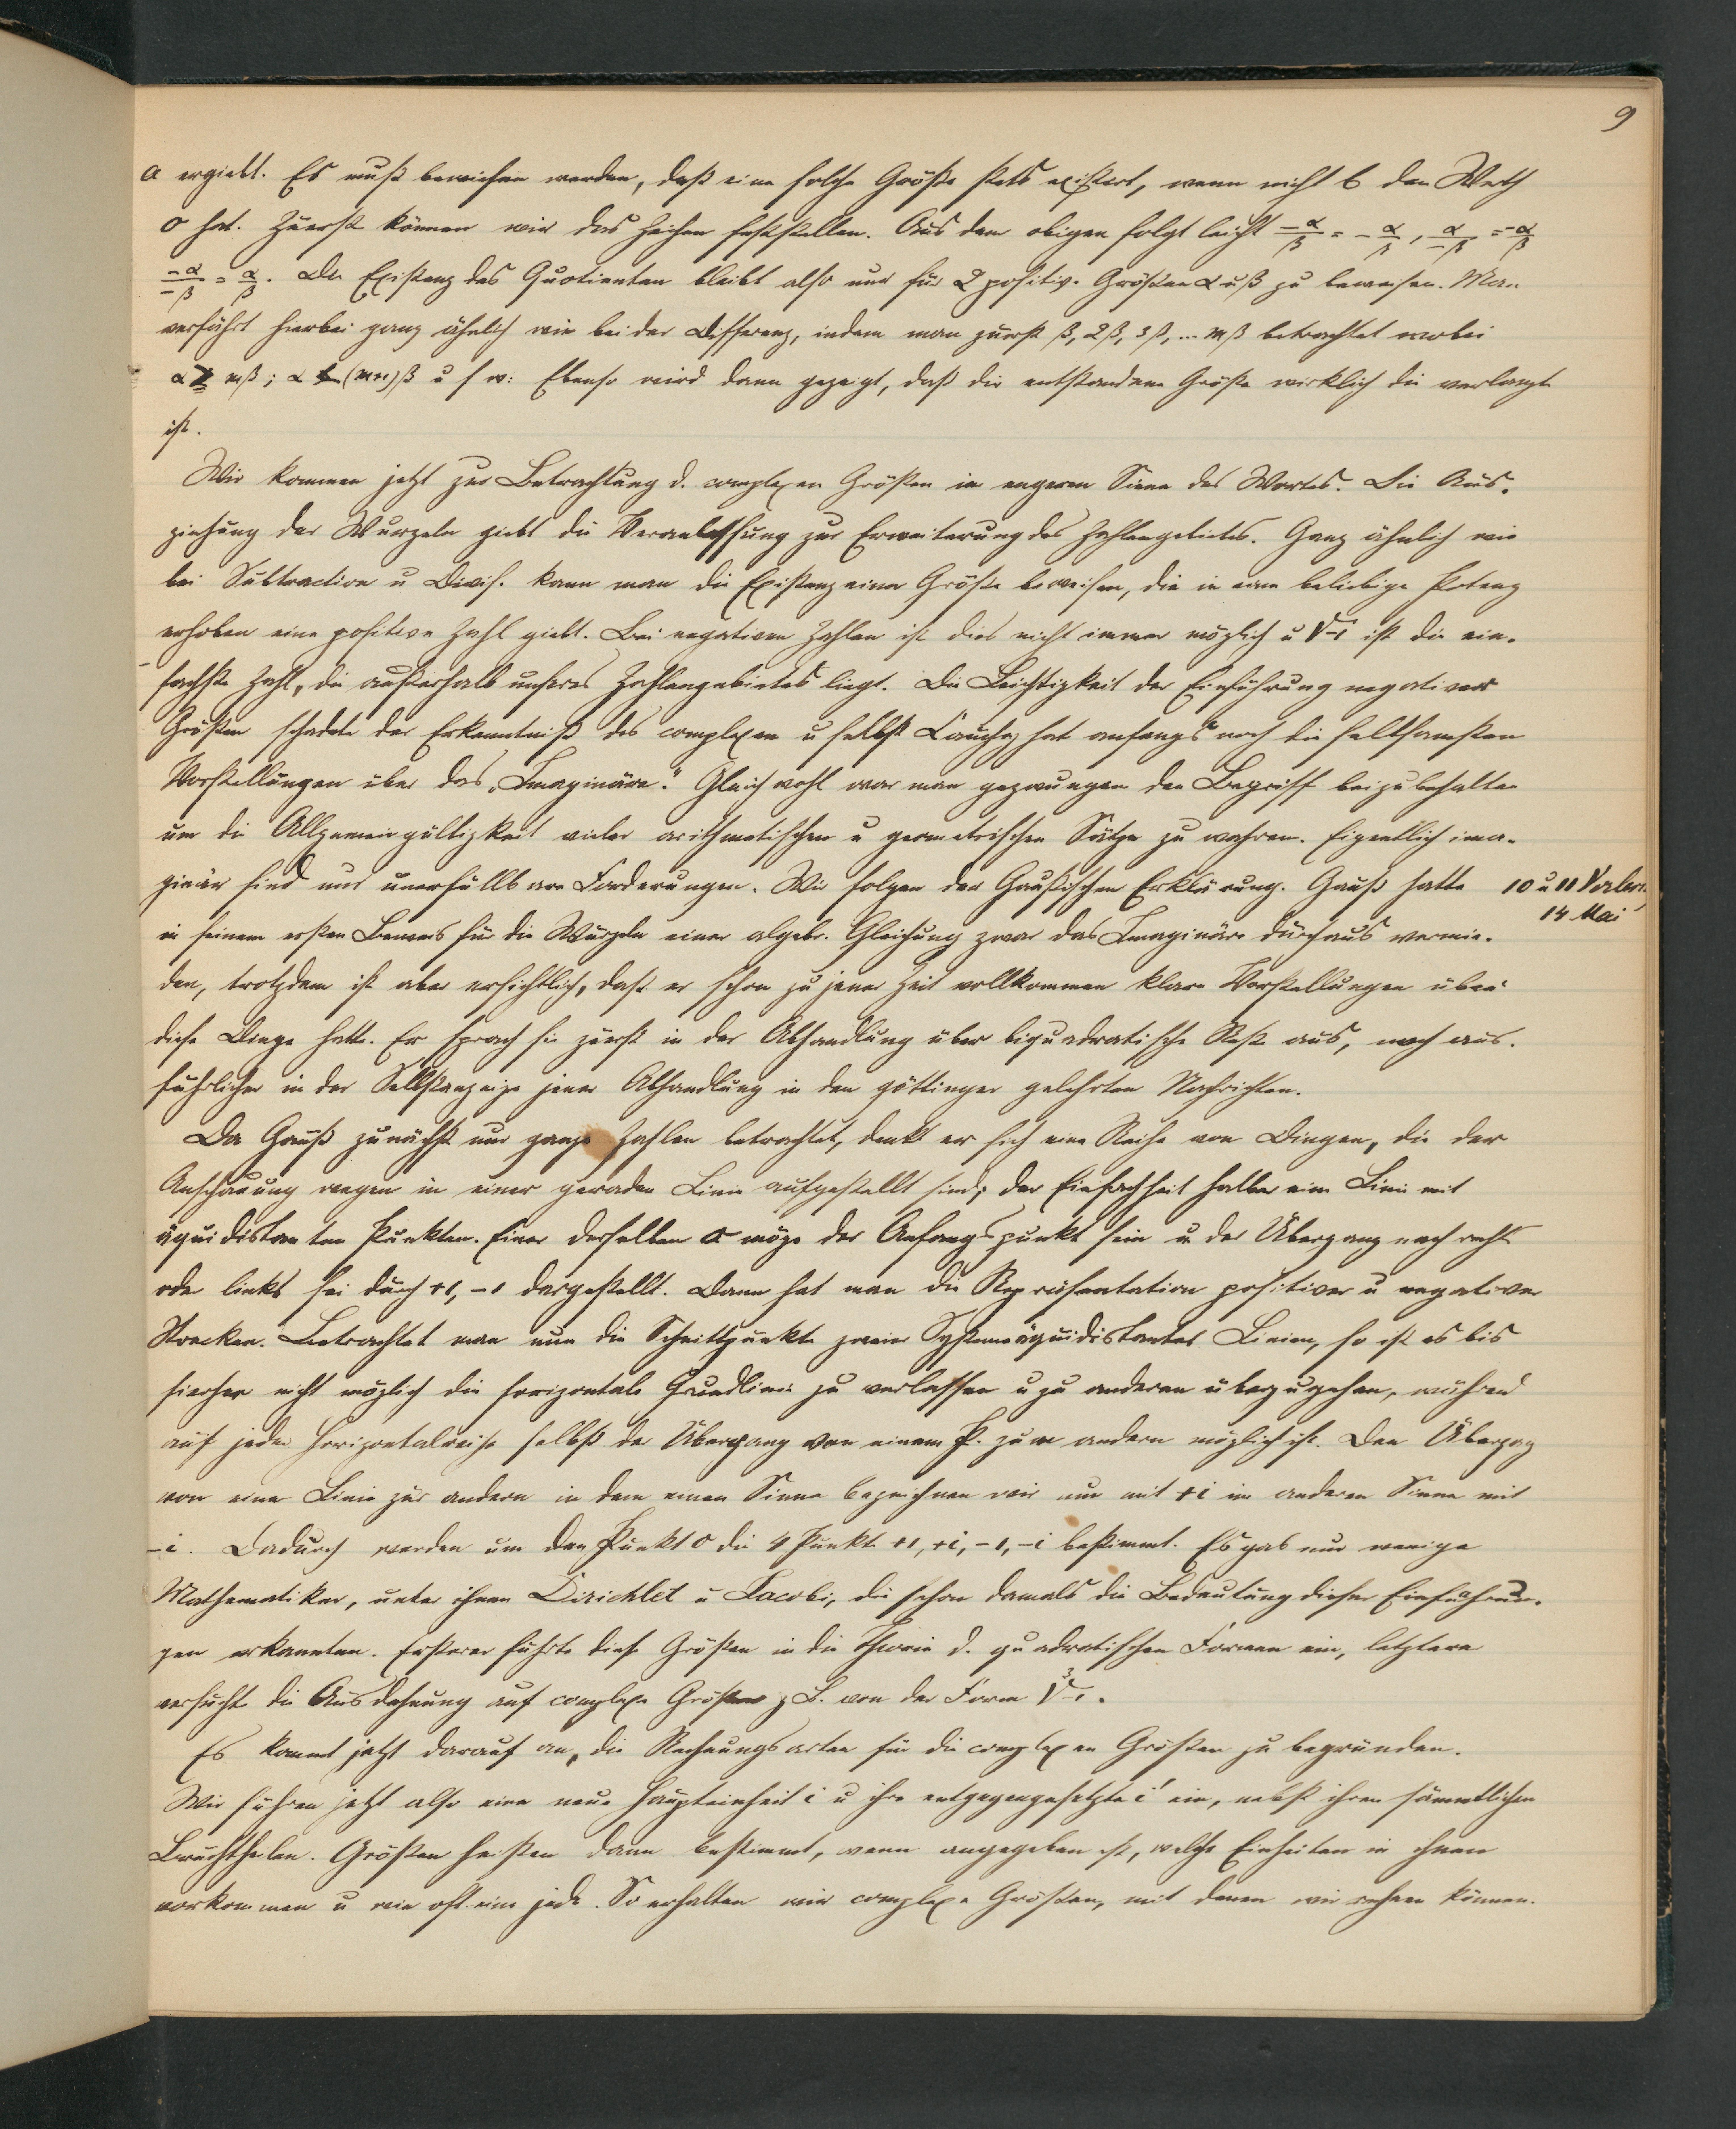 9
a ergiebt. Es muß bewiesen werden, daß eine solche Größe stets existirt, wenn nicht b den Werth
0 hat. Zuerst können wir das Zeichen feststellen. Aus dem obigen folgt leicht −α/β = −α/β, α/−β = −α/β
−α/−β = α/β. Die Existenz des Quotienten bleibt also nur für 2 positive Größen α u β zu beweisen. Man
verfährt hierbei ganz ähnlich wie bei der Differenz, indem man zuerst β, 2β, 3β, ... mβ betrachtet wobei
α ≧ mβ; α < (m+1)β u s w: Ebenso wird dann gezeigt, daß die entstandene Größe wirklich die verlangte
ist.
Wir kommen jetzt zur Betrachtung d. complexen Größen im engeren Sinne des Wortes. Die Aus-
ziehung der Wurzeln giebt die Veranlassung zur Erweiterung des Zahlengebietes. Ganz ähnlich wie
bei Subtraction u Divis. kann man die Existenz einer Größe beweisen, die in eine beliebige Potenz
erhoben eine positive Zahl giebt. Bei negativen Zahlen ist dies nicht immer möglich u √−1 ist die ein-
fachste Zahl, die außerhalb unseres Zahlengebietes liegt. Die Leichtigkeit der Einführung negativer
Größen schadete der Erkenntniß des complexen u selbst Cauchy hat anfangs noch die seltsamsten
Vorstellungen über das „Imaginäre." Gleichwohl war man gezwungen den Begriff beizubehalten
um die Allgemeingültigkeit vieler arithmetischen u geometrischen Sätze zu wahren. Eigentlich ima-
ginär sind nur unerfüllbare Forderungen. Wir folgen der Gaußischen Erklärung. Gauß hatte
10 u 11 Vorles.
14 Mai
in seinem ersten Beweis für die Wurzeln einer algebr. Gleichung zwar das Imaginäre durchaus vermie-
den, trotzdem ist aber ersichtlich, daß er schon zu jener Zeit vollkommen klare Vorstellungen über
diese Dinge hatte. Er sprach sie zuerst in der Abhandlung über biquadratische Reste aus, noch aus-
führlicher in der Selbstanzeige jener Abhandlung in den göttinger gelehrten Nachrichten.
Da Gauß zunächst nur ganze Zahlen betrachtet, denkt er sich eine Reihe von Dingen, die der
Anschauung wegen in einer geraden Linie aufgestellt sind; der Einfachheit halber eine Linie mit
äquidistanten Punkten. Einer derselben 0 möge der Anfangspunkt sein u der Übergang nach rechts
oder links sei durch +1, −1 dargestellt. Dann hat man die Repräsentation positiver u negativer
Strecken. Betrachtet man nun die Schnittpunkte zweier Systeme äquidistanter Linien, so ist es bis
hierher nicht möglich die horizontale Grundlinie zu verlassen u zu anderen überzugehen, während
auf jeder Horizontalreihe selbst der Übergang von einem P. zum andern möglich ist. Den Übergang
von einer Linie zur andern in dem einen Sinne bezeichnen wir nun mit +i im anderen Sinne mit
−i. Dadurch werden um den Punkt 0 die 4 Punkte +1, +i, −1, −i bestimmt. Es gab nur wenige
Mathematiker, unter ihnen Dirichlet u Jacobi, die schon damals die Bedeutung dieser Einführun-
gen erkannten. Ersterer führte diese Größen in die Theorie d. quadratischen Formen ein, letzterer
versucht die Ausdehnung auf complexe Größen z B. von der Form ∛−1.
Es kommt jetzt darauf an, die Rechnungsarten für die complexen Größen zu begründen.
Wir führen jetzt also eine neue Haupteinheit i u ihre entgegengesetzte i' ein, nebst ihren sämmtlichen
Bruchtheilen. Größen heißen dann bestimmt, wenn angegeben ist, welche Einheiten in ihnen
vorkommen u wie oft eine jede. So erhalten wir complexe Größen, mit denen wir rechnen können.